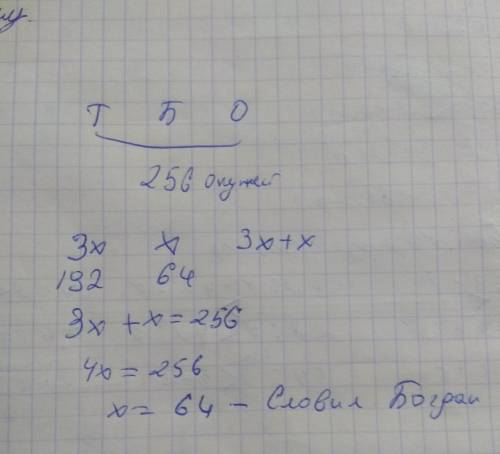 Т Б О
256 окуней
3x x 3x+x
192 64
3x + x = 256
4x = 256
x = 64 - Словил Богдан